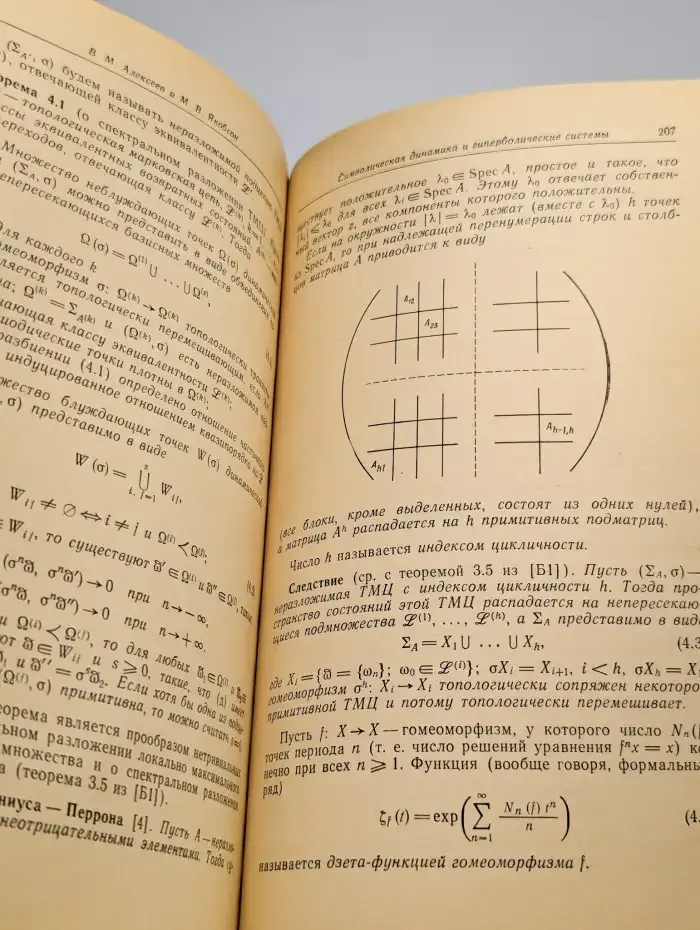 В. М. Алексеев и М. В. Якобсон
(Σ_A', σ) будем называть неразложимой
, отвечающей классу эквивалентности
4.1 (о спектральном разложении
— топологическая марковская цепь,
эквивалентных возвратных состояний
переходов, отвечающая классу ℒ^(k). Тогда
Множество неблуждающих точек Ω(σ)
(Σ_A, σ) можно представить в виде объединения
непересекающихся базисных множеств
Ω(σ) = Ω^(1) ∪ ... ∪ Ω^(s),
для каждого k
σ: Ω^(k) → Ω^(k) топологически
топологически перемешивающим, если
Ω^(k) = Σ_A(k) и (Ω^(k), σ) есть неразложимая
классу эквивалентности ℒ^(k);
точки плотны в Ω^(k);
разбиении (4.1) определено отношение
индуцированное отношением квазипорядка на ℒ
блуждающих точек W(σ)
σ) представимо в виде
W(σ) = ⋃_{i, j=1}^{s} W_ij,
W_ij ≠ ∅ ⇔ i ≠ j и Ω^(i) ≺ Ω^(j),
W_ij, то существуют ω̄' ∈ Ω^(i) и ω̄'' ∈ Ω^(j),
(σ^n ω̄, σ^n ω̄') → 0 при n → −∞,
(σ^n ω̄, σ^n ω̄'') → 0 при n → +∞.
и Ω^(i) ≺ Ω^(j), то для любых
ω̄ ∈ W_ij и s ⩾ 0, такие, что
и ω̄'' = σ^s ω̄_2. Если хотя бы одна из
σ) примитивна, то можно считать
является прообразом нетривиальных
разложении локально максимального
множества и о спектральном разложении
(теорема 3.5 из [Б1]).
— Перрона [4]. Пусть A —
неотрицательными элементами. Тогда
Символическая динамика и гиперболические системы 207
положительное λ₀ ∈ Spec A, простое и такое, что
|λ_i| ⩽ λ₀ для всех λ_i ∈ Spec A. Этому λ₀ отвечает собствен-
ный вектор z, все компоненты которого положительны.
Если на окружности |λ| = λ₀ лежат (вместе с λ₀) h точек
из Spec A, то при надлежащей перенумерации строк и столб-
цов матрица A приводится к виду
A₁₂
A₂₃
A_{h−1,h}
A_{h1}
(все блоки, кроме выделенных, состоят из одних нулей),
а матрица A^h распадается на h примитивных подматриц.
Число h называется индексом цикличности.
Следствие (ср. с теоремой 3.5 из [Б1]). Пусть (Σ_A, σ) —
неразложимая ТМЦ с индексом цикличности h. Тогда про-
странство состояний этой ТМЦ распадается на непересекаю-
щиеся подмножества ℒ^(1), ..., ℒ^(h), а Σ_A представимо в виде
Σ_A = X₁ ∪ ... ∪ X_h, (4.3
где X_i = {ω̄ = {ω_n}; ω₀ ∈ ℒ^(i)}; σX_i = X_{i+1}, i < h, σX_h = X
гомеоморфизм σ^h: X_i → X_i топологически сопряжен некоторой
примитивной ТМЦ и потому топологически перемешивает.
Пусть f: X → X — гомеоморфизм, у которого число N_n(f
точек периода n (т. е. число решений уравнения f^n x = x) ко
нечно при всех n ⩾ 1. Функция (вообще говоря, формальный
ряд)
ζ_f(t) = exp(∑_{n=1}^{∞} N_n(f) t^n / n) (4.
называется дзета-функцией гомеоморфизма f.